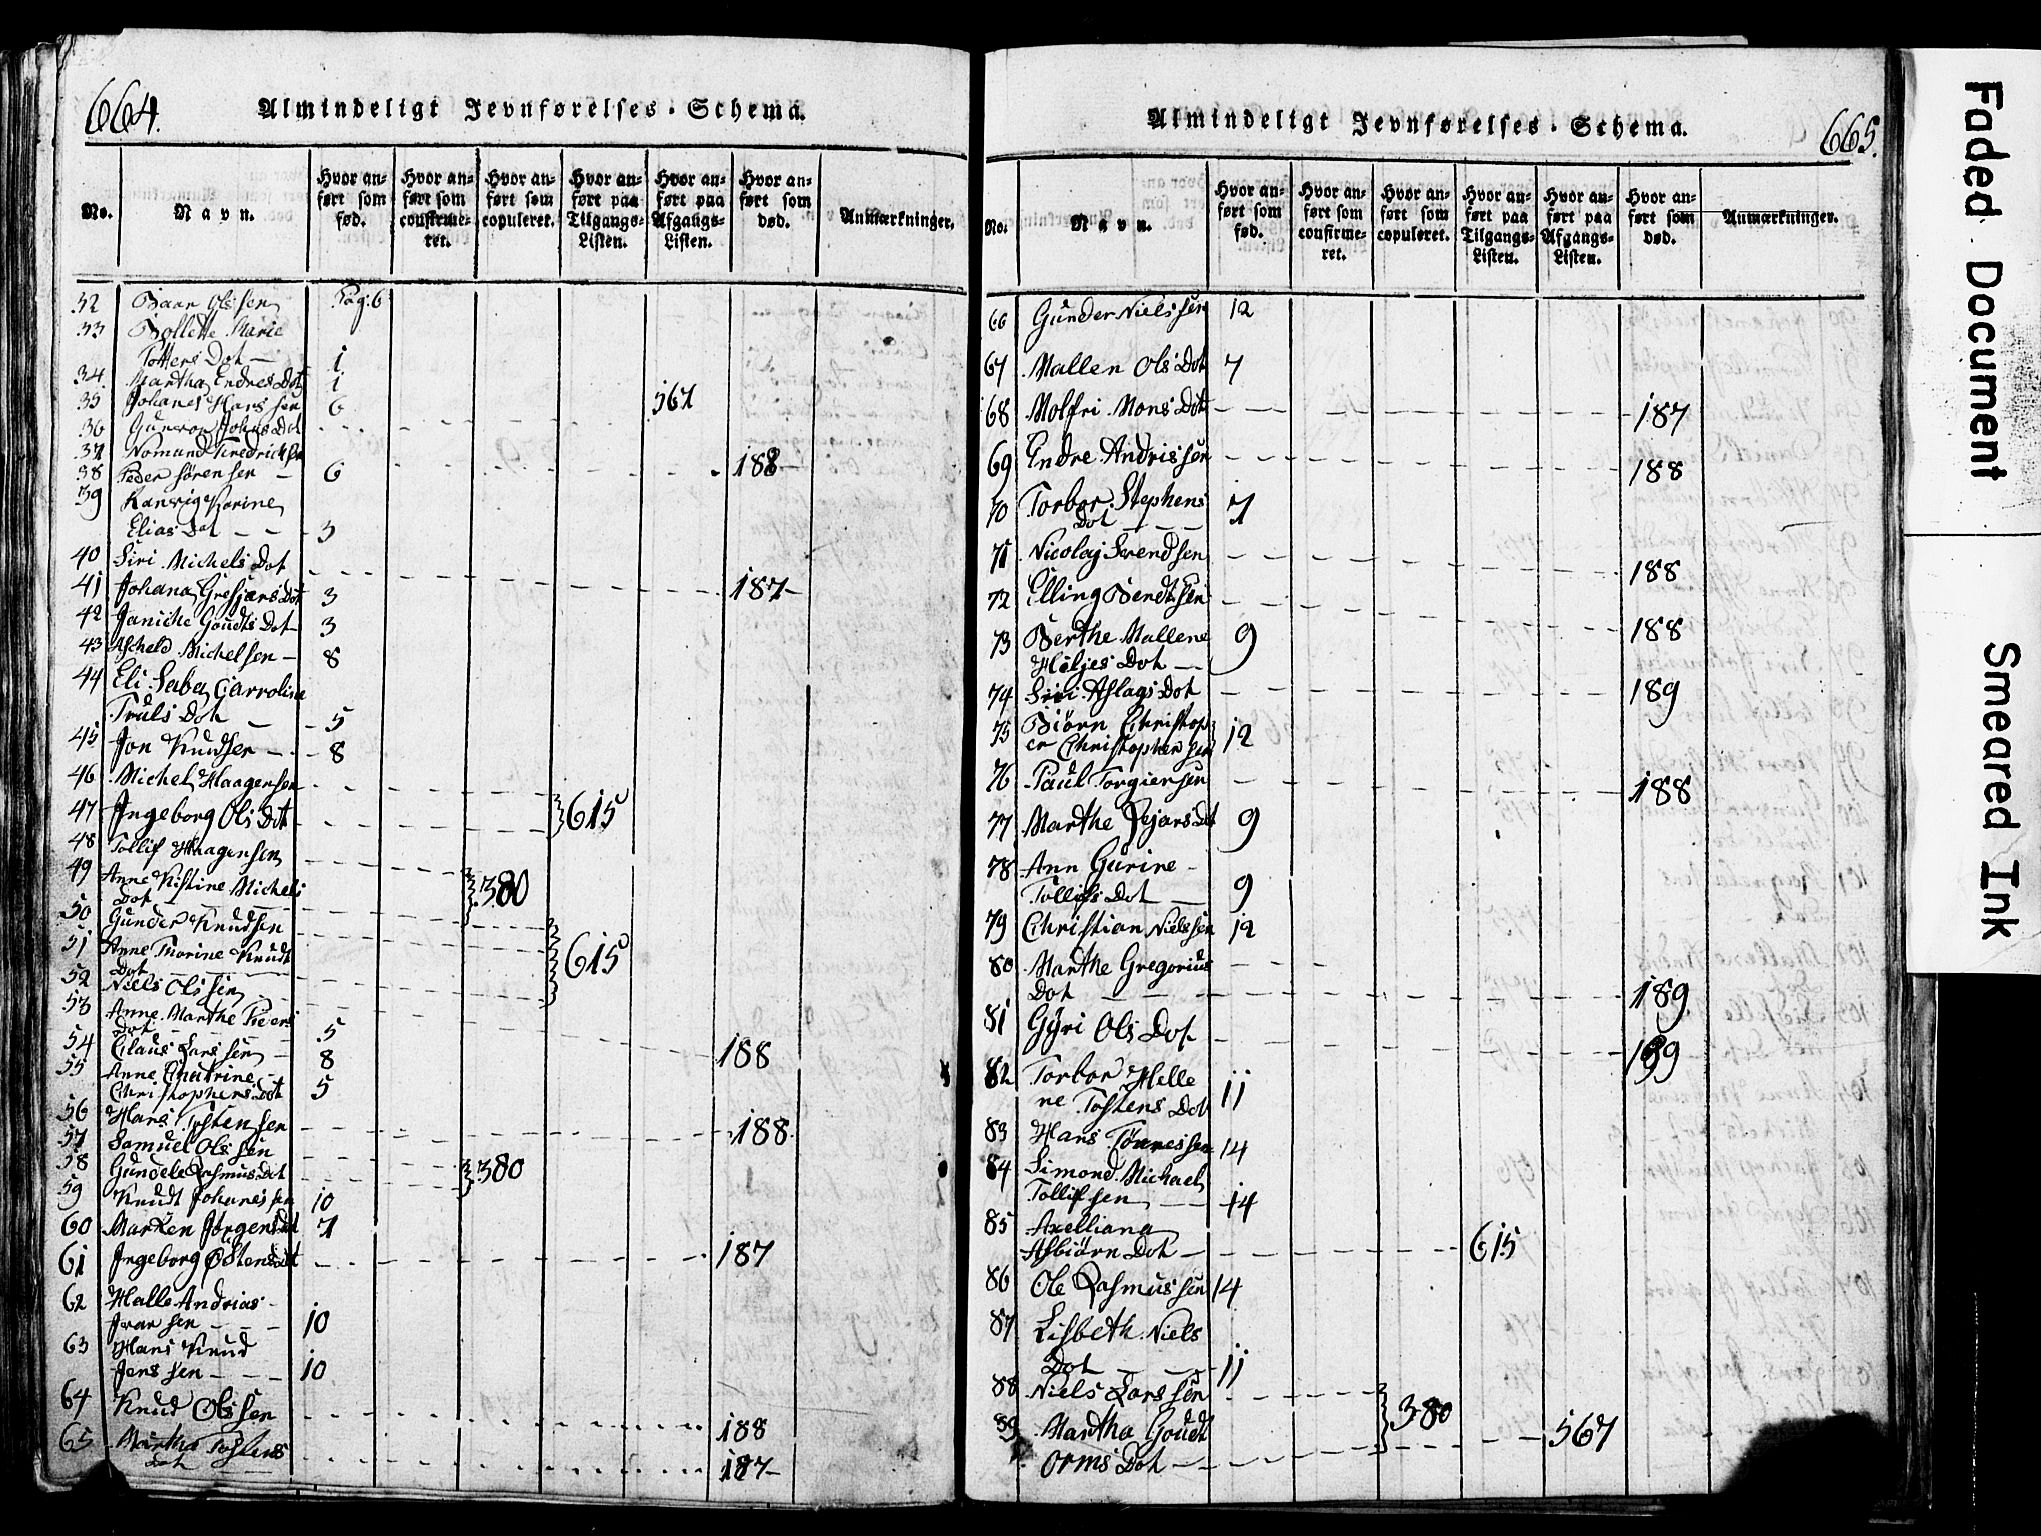 664.
Almindeligt Jevnførelses-Schema.
No.
Navn.
Hvor anført som fød.
Hvor anført som confirmeret.
Hvor anført som copuleret.
Hvor anført paa Tilgangs-Listen.
Hvor anført paa Afgangs-Listen.
Hvor anført som død.
Anmærkninger.
32 Baar Olssen Pag: 6
33 Bollette Marie
Potters Dot — 1
34 Martha Endres Dot 1
35 Johanes Hans sen 6
36 Gunvor Johns Dot 567
37 Nomund Fredrichsen 188
38 Peder Sørensen — 6
39 Karine
Elias Dot — 3
40 Siri Michels Dot 187
41 Johana Dot 3
42 Janiche Goudts Dot 3
43 Michelsen — 8
44 Eli Carroline
Truls Dot — 5
45 Jon Knudsen — 8
46 Michel Haagensen
47 Ingeborg Ols Dot 615
48 Tollif Haagensen
49 Anne Kistine Michels
Dot 380
50 Gunder Knudsen
51 Anne Thorine Knudt
Dot 615
52 Niels Olssen
53 Anne Marthe Peders
Dot 5
54 Claus Larssen 8 188
55 Anne Chatrine
Christophers Dot 5
56 Hans Tostensen 188
57 Samuel Olssen
58 Gundele Rasmus Dot 380
59 Knudt Johanessen 10
60 Marken Jørgens Dot 7
61 Ingeborg Østens Dot 187
62 Halle Andrias
Ivarsen 10
63 Hans Knud
Jenssen 10
64 Knud Olssen 188
65 Martha Tostens
Dot 187
Almindeligt Jevnførelses-Schema.
665.
No.
Navn.
Hvor anført som fød.
Hvor anført som confirmeret.
Hvor anført som copuleret.
Hvor anført paa Tilgangs-Listen.
Hvor anført paa Afgangs-Listen.
Hvor anført som død.
Anmærkninger.
66 Gunder Nielssen 12
67 Mallen Ols Dot 7
68 Molfri Mons Dot 187
69 Endre Andrissen 188
70 Torbor Stephens
Dot 7
71 Nicolaj Svendsen 188
72 Elling Bendtsen 188
73 Berthe Mallene
Heljes Dot — 9
74 Siri Aslags Dot 189
75 Biørn Christop
er Christophersen 12
76 Paul Torgiersen 188
77 Marthe Dot 9
78 Ann Gurine
Tollifs Dot 9
79 Christian Nielssen 12
80 Marthe Gregorius
Dot 189
81 Gÿri Ols Dot 189
82 Torbor Helle
ne Tostens Dot 11
83 Hans Tønnessen 14
84 Simond Michael
Tollifsen 14
85 Axelliana
Asbiørn Dot — 615
86 Ole Rasmussen 14
87 Lisbeth Niels
Dot 11
88 Niels Larssen 380
89 Martha Goudt 567
Orms Dot
Faded Document
Smeared Ink